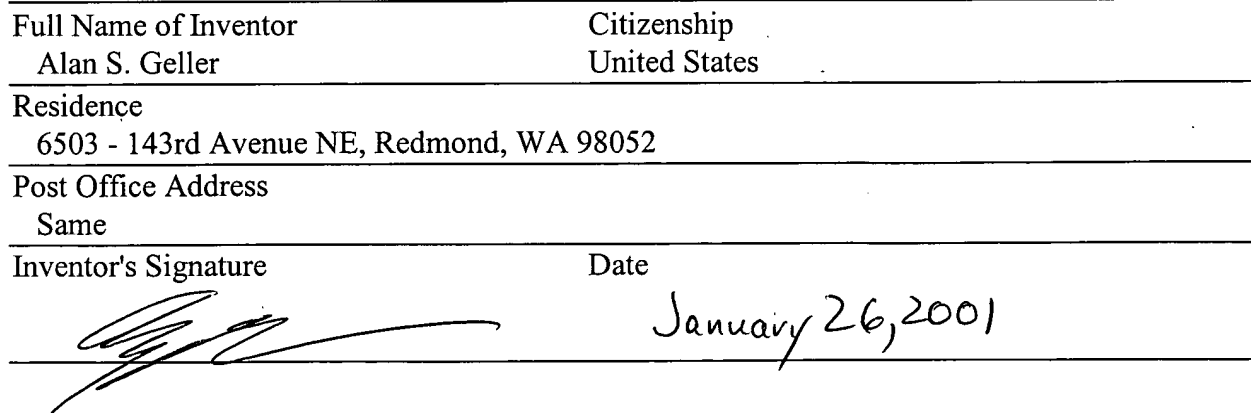 Full Name of Inventor Citizenship
Alan S. Geller United States
Residence
6503 - 143rd Avenue NE, Redmond, WA 98052
Post Office Address
Same
Inventor's Signature Date
January 26, 2001